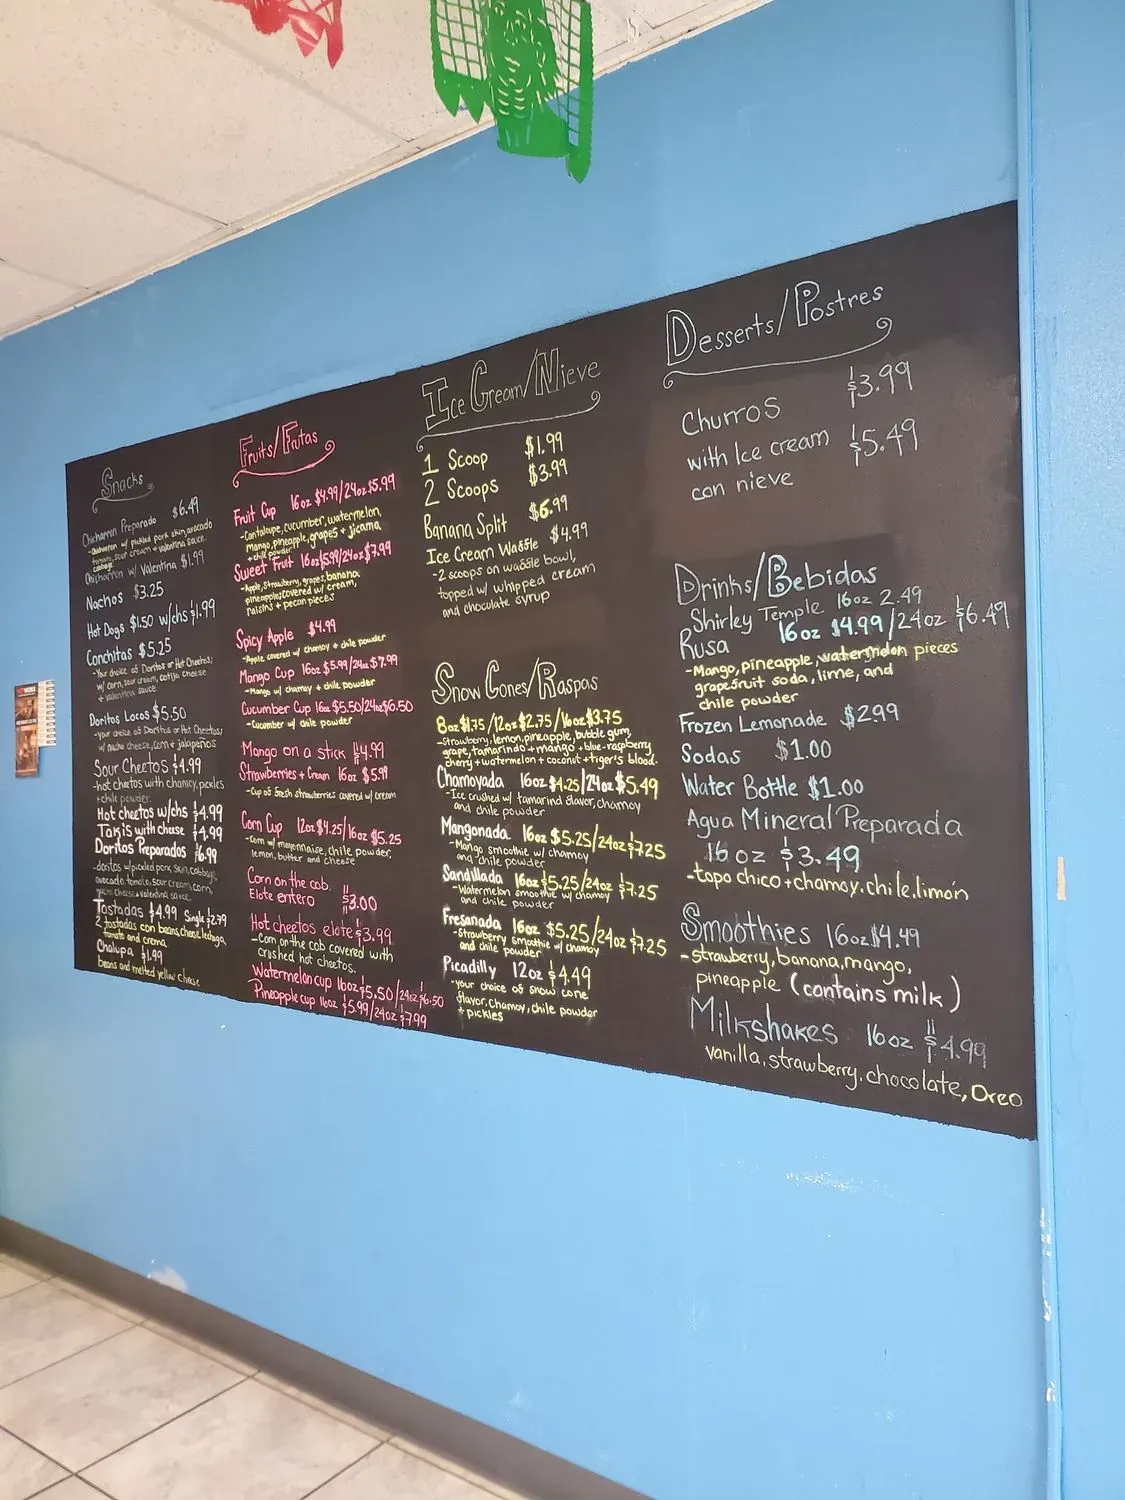 Snacks
Chicharron Preparado $6.49
-Chicharron w/ pickled pork skin, avocado
tomato, sour cream + valentina sauce.
cabbage
Chicharron w/ Valentina $1.99
Nachos $3.25
Hot Dogs $1.50 w/chs $1.99
Conchitas $5.25
-Your choice of Doritos or Hot Cheetos;
w/ corn, sour cream, cotija cheese
+ valentina sauce
Doritos Locos $5.50
-Your choice of Doritos or Hot Cheetos;
w/ nacho cheese, corn + jalapeños
Sour Cheetos $4.99
-hot cheetos with chamoy, pickles
+ chile powder.
Hot cheetos w/chs $4.99
Takis with cheese $4.99
Doritos Preparados $6.99
-doritos w/ pickled pork skin, cabbage,
avocado, tomato, sour cream, corn,
nacho cheese + valentina sauce
Tostadas $4.99 Single $2.79
2 tostadas con beans, cheese, lechuga,
tomato and crema
Chalupa $1.99
beans and melted yellow cheese
Fruits/Frutas
Fruit Cup 16oz $4.99/24oz $5.99
-Cantaloupe, cucumber, watermelon,
mango, pineapple, grapes + jicama
+ chile powder
Sweet Fruit 16oz $5.99/24oz $7.99
-Apple, Strawberry, grapes, banana
pineapple; covered w/ cream,
raisins + pecan pieces
Spicy Apple $4.99
-Apple covered w/ chamoy + chile powder
Mango Cup 16oz $5.99/24oz $7.99
-Mango w/ chamoy + chile powder
Cucumber Cup 16oz $5.50/24oz $6.50
-Cucumber w/ chile powder
Mango on a stick $4.99
Strawberries + Cream 16oz $5.99
-Cup of fresh strawberries covered w/ cream
Corn Cup 12oz $4.25/16oz $5.25
-Corn w/ mayonnaise, chile powder,
lemon, butter and cheese
Corn on the cob.
Elote entero $3.00
Hot cheetos elote $3.99
-Corn on the cob covered with
crushed hot cheetos.
Watermelon cup 16oz $5.50/24oz $6.50
Pineapple cup 16oz $5.99/24oz $7.99
Ice Cream/Nieve
1 Scoop $1.99
2 Scoops $3.99
Banana Split $6.99
Ice Cream Waffle $4.99
-2 scoops on waffle bowl,
topped w/ whipped cream
and chocolate syrup
Snow Cones/Raspas
8oz $1.75/12oz $2.75/16oz $3.75
-Strawberry, lemon, pineapple, bubble gum,
grape, tamarindo + mango + blue-raspberry
cherry + watermelon + coconut + tiger's blood.
Chamoyada 16oz $4.25/24oz $5.49
-Ice crushed w/ tamarind flavor, chamoy
and chile powder
Mangonada 16oz $5.25/24oz $7.25
-Mango smoothie w/ chamoy
and chile powder
Sandillada 16oz $5.25/24oz $7.25
-Watermelon smoothie w/ chamoy
and chile powder
Fresanada 16oz $5.25/24oz $7.25
-Strawberry smoothie w/ chamoy
and chile powder
Picadilly 12oz $4.49
-your choice of snow cone
flavor, chamoy, chile powder
+ pickles
Desserts/Postres
Churros $3.99
with Ice cream $5.49
con nieve
Drinks/Bebidas
Shirley Temple 16oz 2.49
Rusa 16oz $4.99/24oz $6.49
-Mango, pineapple, watermelon pieces
grapefruit soda, lime, and
chile powder
Frozen Lemonade $2.99
Sodas $1.00
Water Bottle $1.00
Agua Mineral Preparada
16oz $3.49
-topo chico + chamoy, chile, limon
Smoothies 16oz $4.49
-strawberry, banana, mango,
pineapple (contains milk)
Milkshakes 16oz $4.99
vanilla, strawberry, chocolate, Oreo